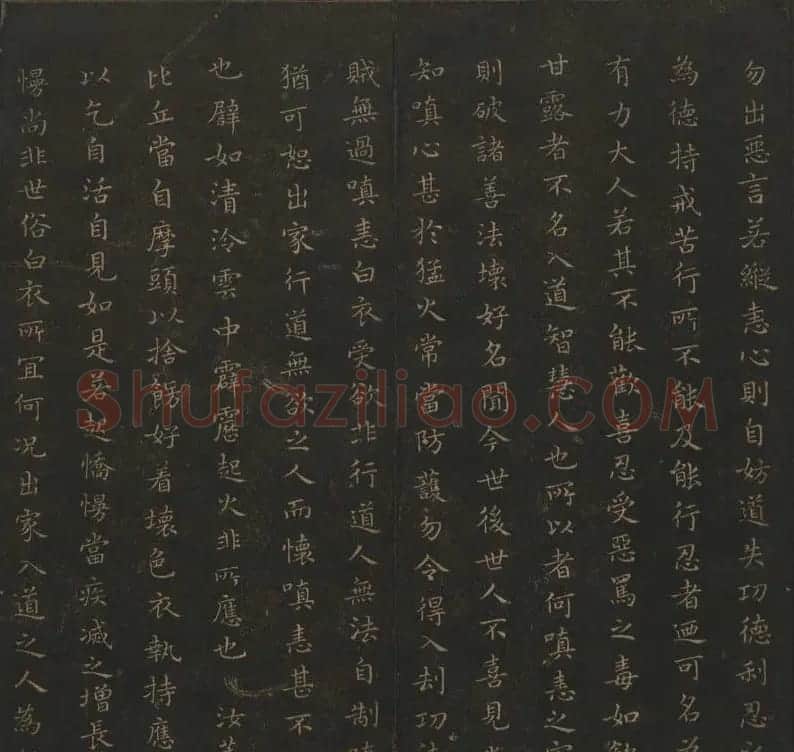 勿出惡言若縱恚心則自妨道失功德利忍
為德持戒苦行所不能及能行忍者迺可名
有力大人若其不能歡喜忍受惡罵之毒如
甘露者不名入道智慧人也所以者何嗔恚之
則破諸善法壞好名聞今世後世人不喜見
知嗔心甚於猛火常當防護勿令得入刦功
賊無過嗔恚白衣受欲非行道人無法自制
猶可恕出家行道無欲之人而懷嗔恚甚不
也辟如清泠雲中霹靂起火非所應也 汝
比丘當自摩頭以捨餝好着壞色衣執持應
以乞自活自見如是若起憍慢當疾滅之增長
慢尚非世俗白衣所宜何况出家入道之人為
Shufaziliao.COM